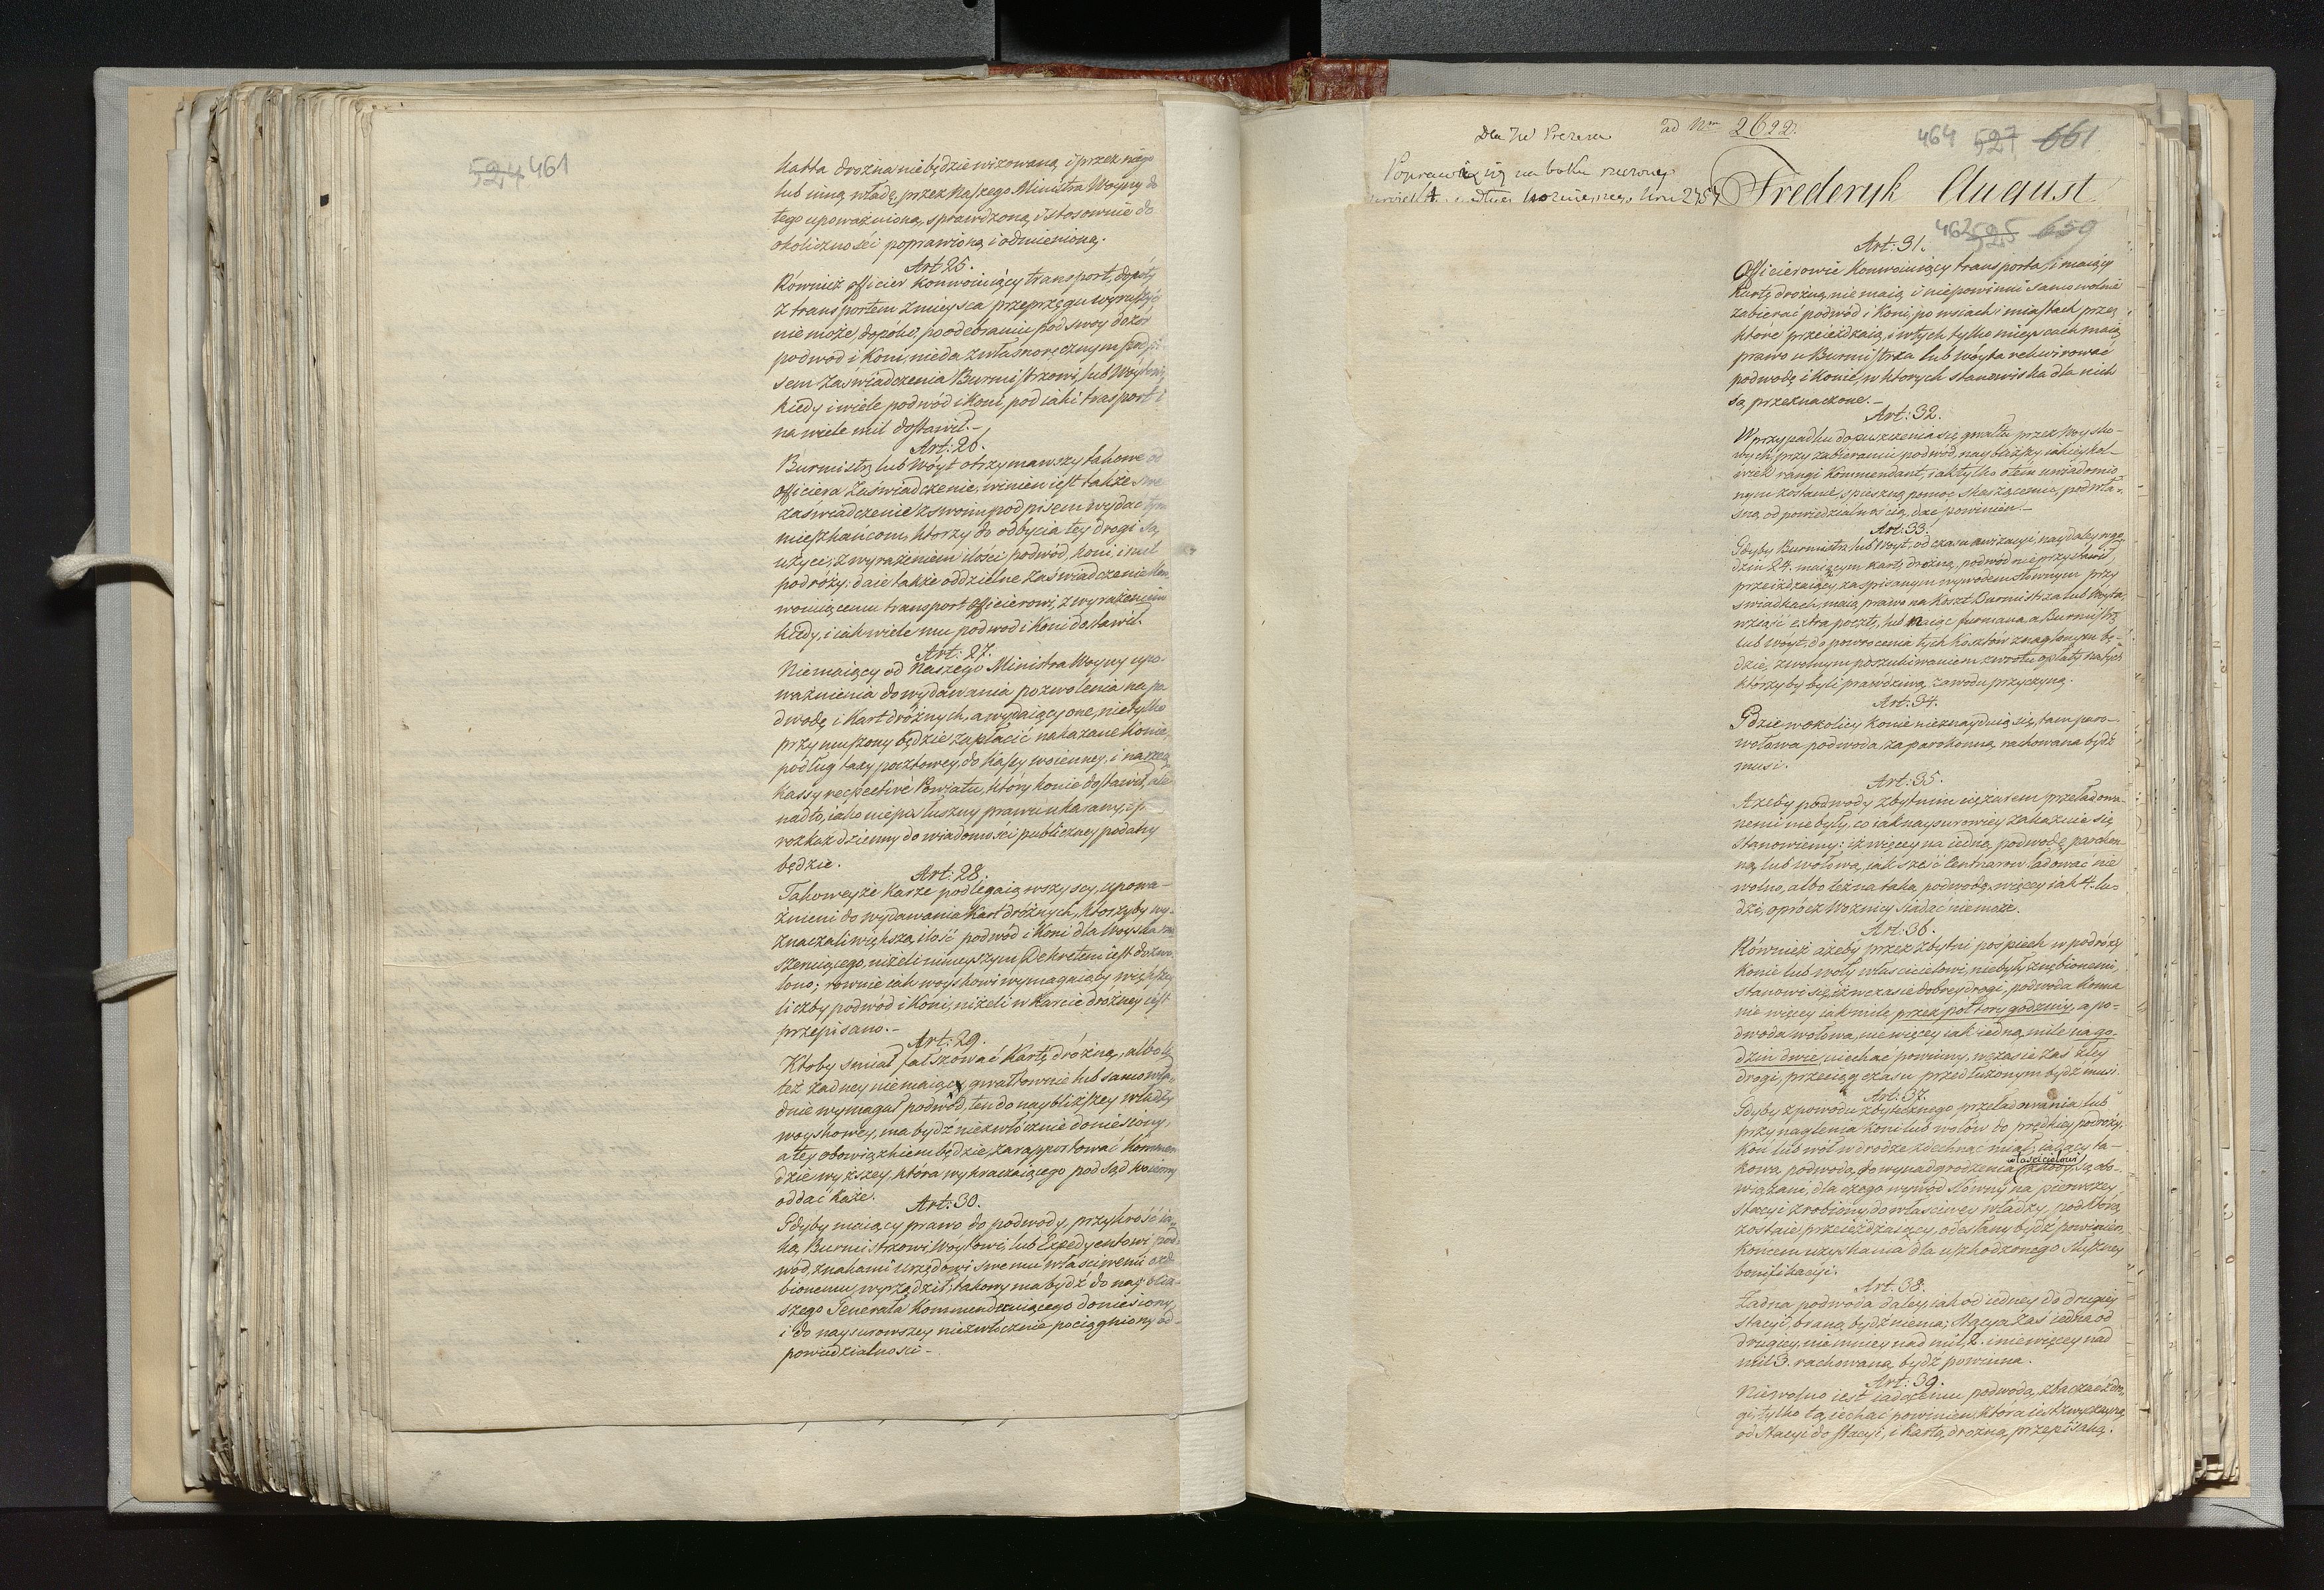 524 461
Karta drożna nie będzie wizowaną i przez niego
lub inną władzę przez Naszego Ministra Woyny do
tego upoważnioną, sprawdzoną, i stosownie do
okoliczności poprawioną i odmienioną.
Art 25.
Również officier konwoiuiący transport, dopóty
z transportem z mieysca przeprzęgu wyruszyć
nie może, dopóki, po odebraniu pod swoy dozór
podwod i koni, nieda z własnoręcznym podpi-
sem zaświadczenia Burmistrzowi, lub Woytowi,
kiedy i wiele podwód i koni, pod iaki trasport i
na wiele mil dostawił.-
Art: 26.
Burmistrz lub Wóyt otrzymawszy takowe od
officiera zaświadczenie, winien iest także swe
zaświadczenie z swoim podpisem wydać tym
mieszkańcom, ktorzy do odbycia tey drogi są
użyci, z wyrażeniem ilości podwód, koni, i mil
podróży: daie także oddzielne zaświadczenie kon-
woiuiącemu transport Officierowi, z wyrażeniem
kiedy, i iak wiele mu podwod i koni dostawił.
Art: 27.
Niemaiący od Naszego Ministra Woyny upo-
ważnienia do wydawania pozwolenia na po
dwodę i Kart dróżnych, a wydaiący one, nietylko
przymuszony będzie zapłacić nakazane konie,
podług taxy pocztowey, do kassy woienney, i na rzecz
kassy respective Powiatu, który konie dostawił, ale
nadto, iako nieposłuszny prawu ukarany, i p.
rozkaz dzienny do wiadomości publiczney podany
będzie.
Art: 28.
Takoweyże karze podlegaią wszyscy, upowa-
żnieni do wydawania Kart dróżnych, ktorzyby wy-
znaczali większą ilość podwód i koni dla Woyska ma
szeruiącego, niżeli ninieyszym Dekretem iest dozwo
lono; rownie iak woyskowi wymagaiący większey
liczby podwód i koni, niżeli w Karcie dróżney iest
przepisano.-
Art: 29.
Ktoby śmiał fałszować Kartę dróżną, albo li
też żadney niemaiąc, gwałtownie lub samowła-
dnie wymagał podwód, ten do naybliższey władzy
woyskowey, ma bydź niezwłócznie doniesiony,
a tey obowiązkiem będzie, zarapportować kommen
dzie wyższey, która wykraczaiącego pod sąd woienny
oddać każe.
Art: 30.
Gdyby maiący prawo do podwody, przykrość ia-
ką Burmistrzowi, Wóytowi, lub Expedyentowi pod-
wód, znakami Urzędowi swemu właściwemi ozdo
bionemu, wyrządził; takowy ma bydź do naybliż-
szego Generała Kommenderuiącego doniesiony,
i do naysurowszey niezwłocznie pociągniony od-
powiedzialności-
Dla JW Prezesa ad Nrm 2622.
464 527 661
Frederyk August
462 525 659
Art: 31.
Officierowie konwoiuiący transporta, i maiący
Kartę drożną, nie maią i niepowinni samowolnie
zabierać podwód i koni, po wsiach i miastach przez
które przeieżdżaią, i w tych tylko mieyscach maią
prawo u Burmistrza lub Wóyta rekwirować
podwodę i konie, w ktorych stanowiska dla nich
są przeznaczone.-
Art: 32.
W przypadku dopuszczenia się gwałtu przez Woysko-
wych, przy zabieraniu podwód, naybliższy iakieykol-
wiek rangi Kommendant, iak tylko o tem uwiadomio
nym zostanie, spieszną pomoc skarżącemu, pod wła-
sną odpowiedzialnością, dać powinien.-
Art: 33.
Gdyby Burmistrz lub Woyt, od czasu awizacyi, naydaley w go
dzin 24. maiącym kartę drożną, podwód nie przystawił,
przeieżdżaiący, za spisanym wywodem słownym przy
świadkach, maią prawo na koszt Burmistrza lub Woyta,
wziąść extra pocztę, lub naiąc furmana, a Burmistrz
lub Woyt, do powrocenia tych kosztów znaglonym bę-
dzie, z wolnym poszukiwaniem zwrotu opłaty na tych
którzyby byli prawdziwą zawodu przyczyną.
Art: 34.
Gdzie w okolicy konie nieznayduią się, tam paro-
wołowa podwoda, za parokonną rachowana bydź
musi.
Art: 35.
Ażeby podwody zbytnim ciężarem przeładowa-
nemi nie były, co iak naysurowiey zakazuie się
Stanowiemy: iż więcey na iedną podwodę parokon-
ną, lub wołową, iak sześć Centnarow ładować nie
wolno, albo też na taką podwodę, więcey iak 4. lu-
dzi, oprócz Woźnicy siadać niemoże.
Art: 36.
Również ażeby przez zbytni pośpiech w podróży
konie lub woły właścicielowi, niebyły znębionemi,
stanowi się, iż w czasie dobrey drogi, podwoda konna
nie więcey iak milę przez półtory godziny, a po-
dwoda wołowa, nie więcey iak iedną milę na go-
dzin dwie, uiechać powinny, w czasie zaś złey
drogi, przeciąg czasu przedłużonym bydź musi.
Art: 37.
Gdyby z powodu zbytecznego przeładowania, lub
przynaglenia koni lub wołów do prędkiey podróży,
koń lub wół w drodze zdechnąć miał, iadący ta-
właścicielowi
kową podwodą, do wynadgrodzenia szkody, są obo-
wiązani, dla czego wywód słowny na pierwszey
Stacyi zrobiony, do właściwey władzy, pod którą
zostaie przeieżdżaiący, odesłany bydź powinien,
koncem uzyskania dla uszkodzonego słuszney
bonifikacyi.
Art: 38.
Żadna podwoda daley, iak od iedney do drugiey
stacyi, braną bydź niema; Stacya zaś iedna od
drugiey, nie mniey nad mil, 2. i niewięcey nad
mil 3. rachowaną bydź powinna.
Art: 39.
Niewolno iest iadącemu podwodą, zbaczać z dro-
gi, tylko tą iechać powinien, która iest zwyczayną
od Stacyi do stacyi, i Kartą drożną przepisaną.